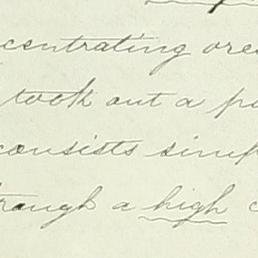 centrating ores
took out a
consists
through a high